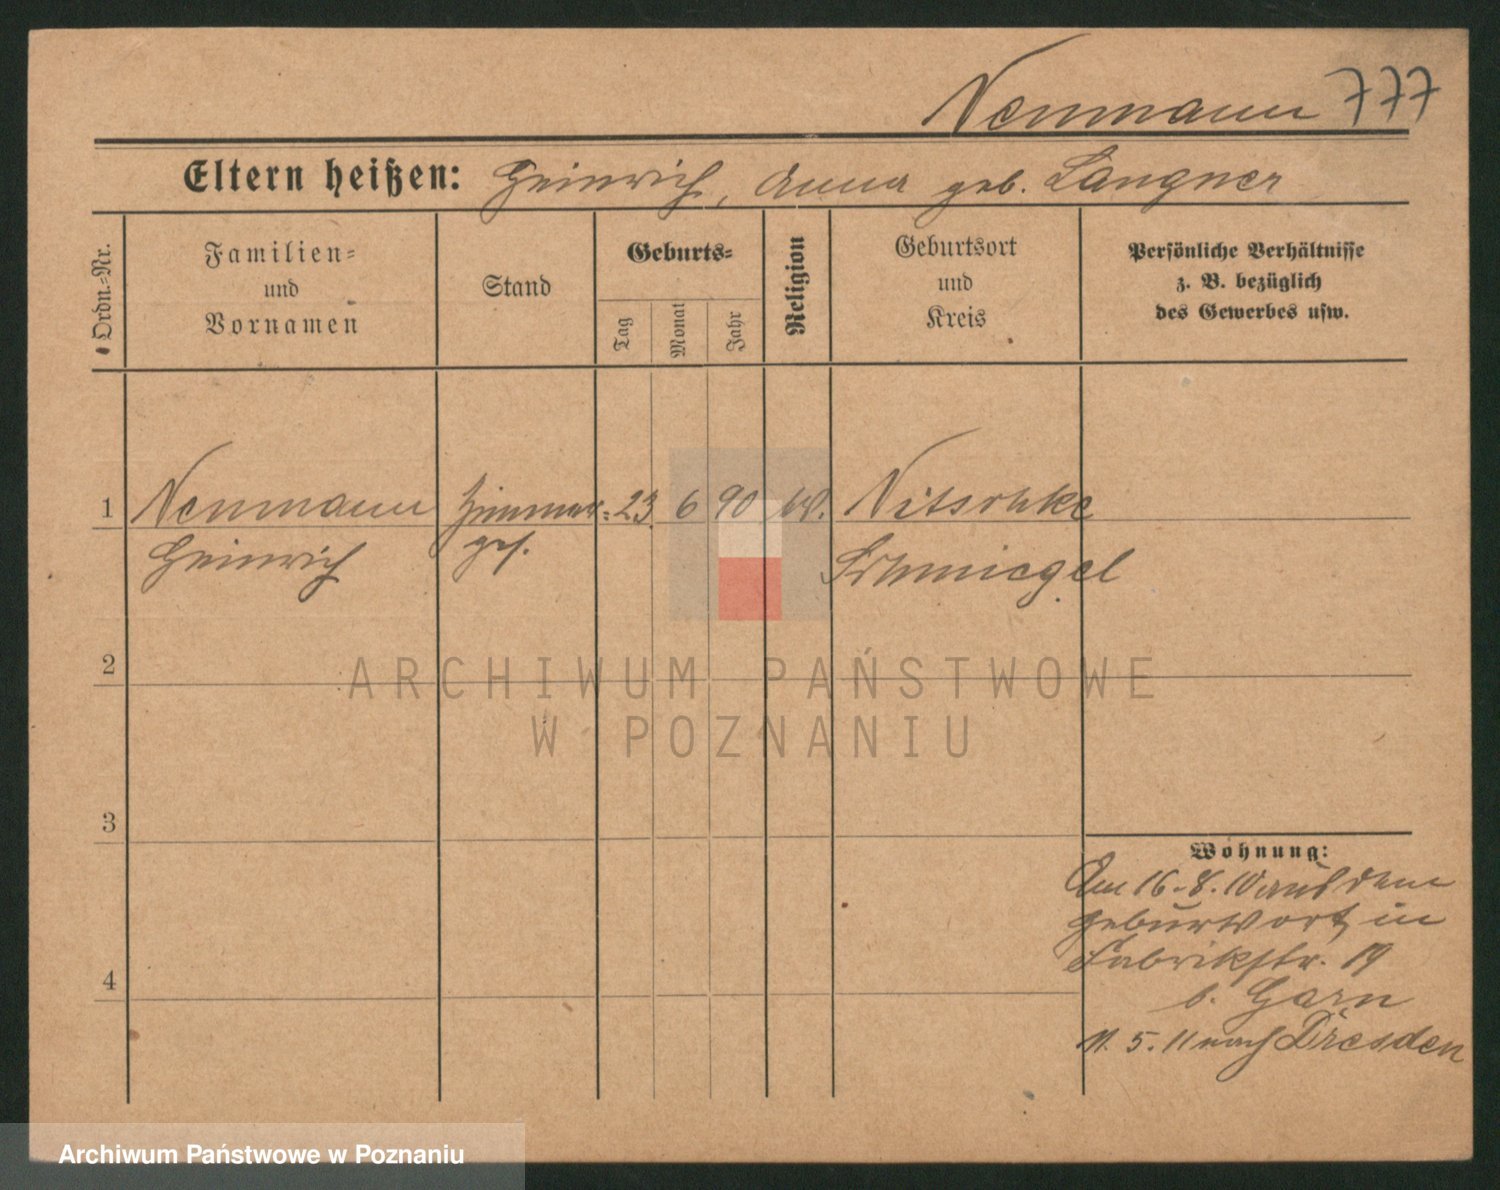 Neumann 777
Eltern heißen: Heinrich, Anna geb. Langner
Ordn.=Nr.
Familien=
und
Vornamen
Stand
Geburts=
Tag
Monat
Jahr
Religion
Geburtsort
und
Kreis
Persönliche Verhältnisse
z. B. bezüglich
des Gewerbes usw.
1 Neumann Zimmer= 23 6 90 Nitschke
Heinrich ges. Schmiegel
2
3
4
Wohnung:
Am 16.8.10 aus dem
Geburtsort in
Fabrikstr. 19
b. Garn
11. 5. 11 nach Dresden
ARCHIWUM PAŃSTWOWE
W POZNANIU
Archiwum Państwowe w Poznaniu